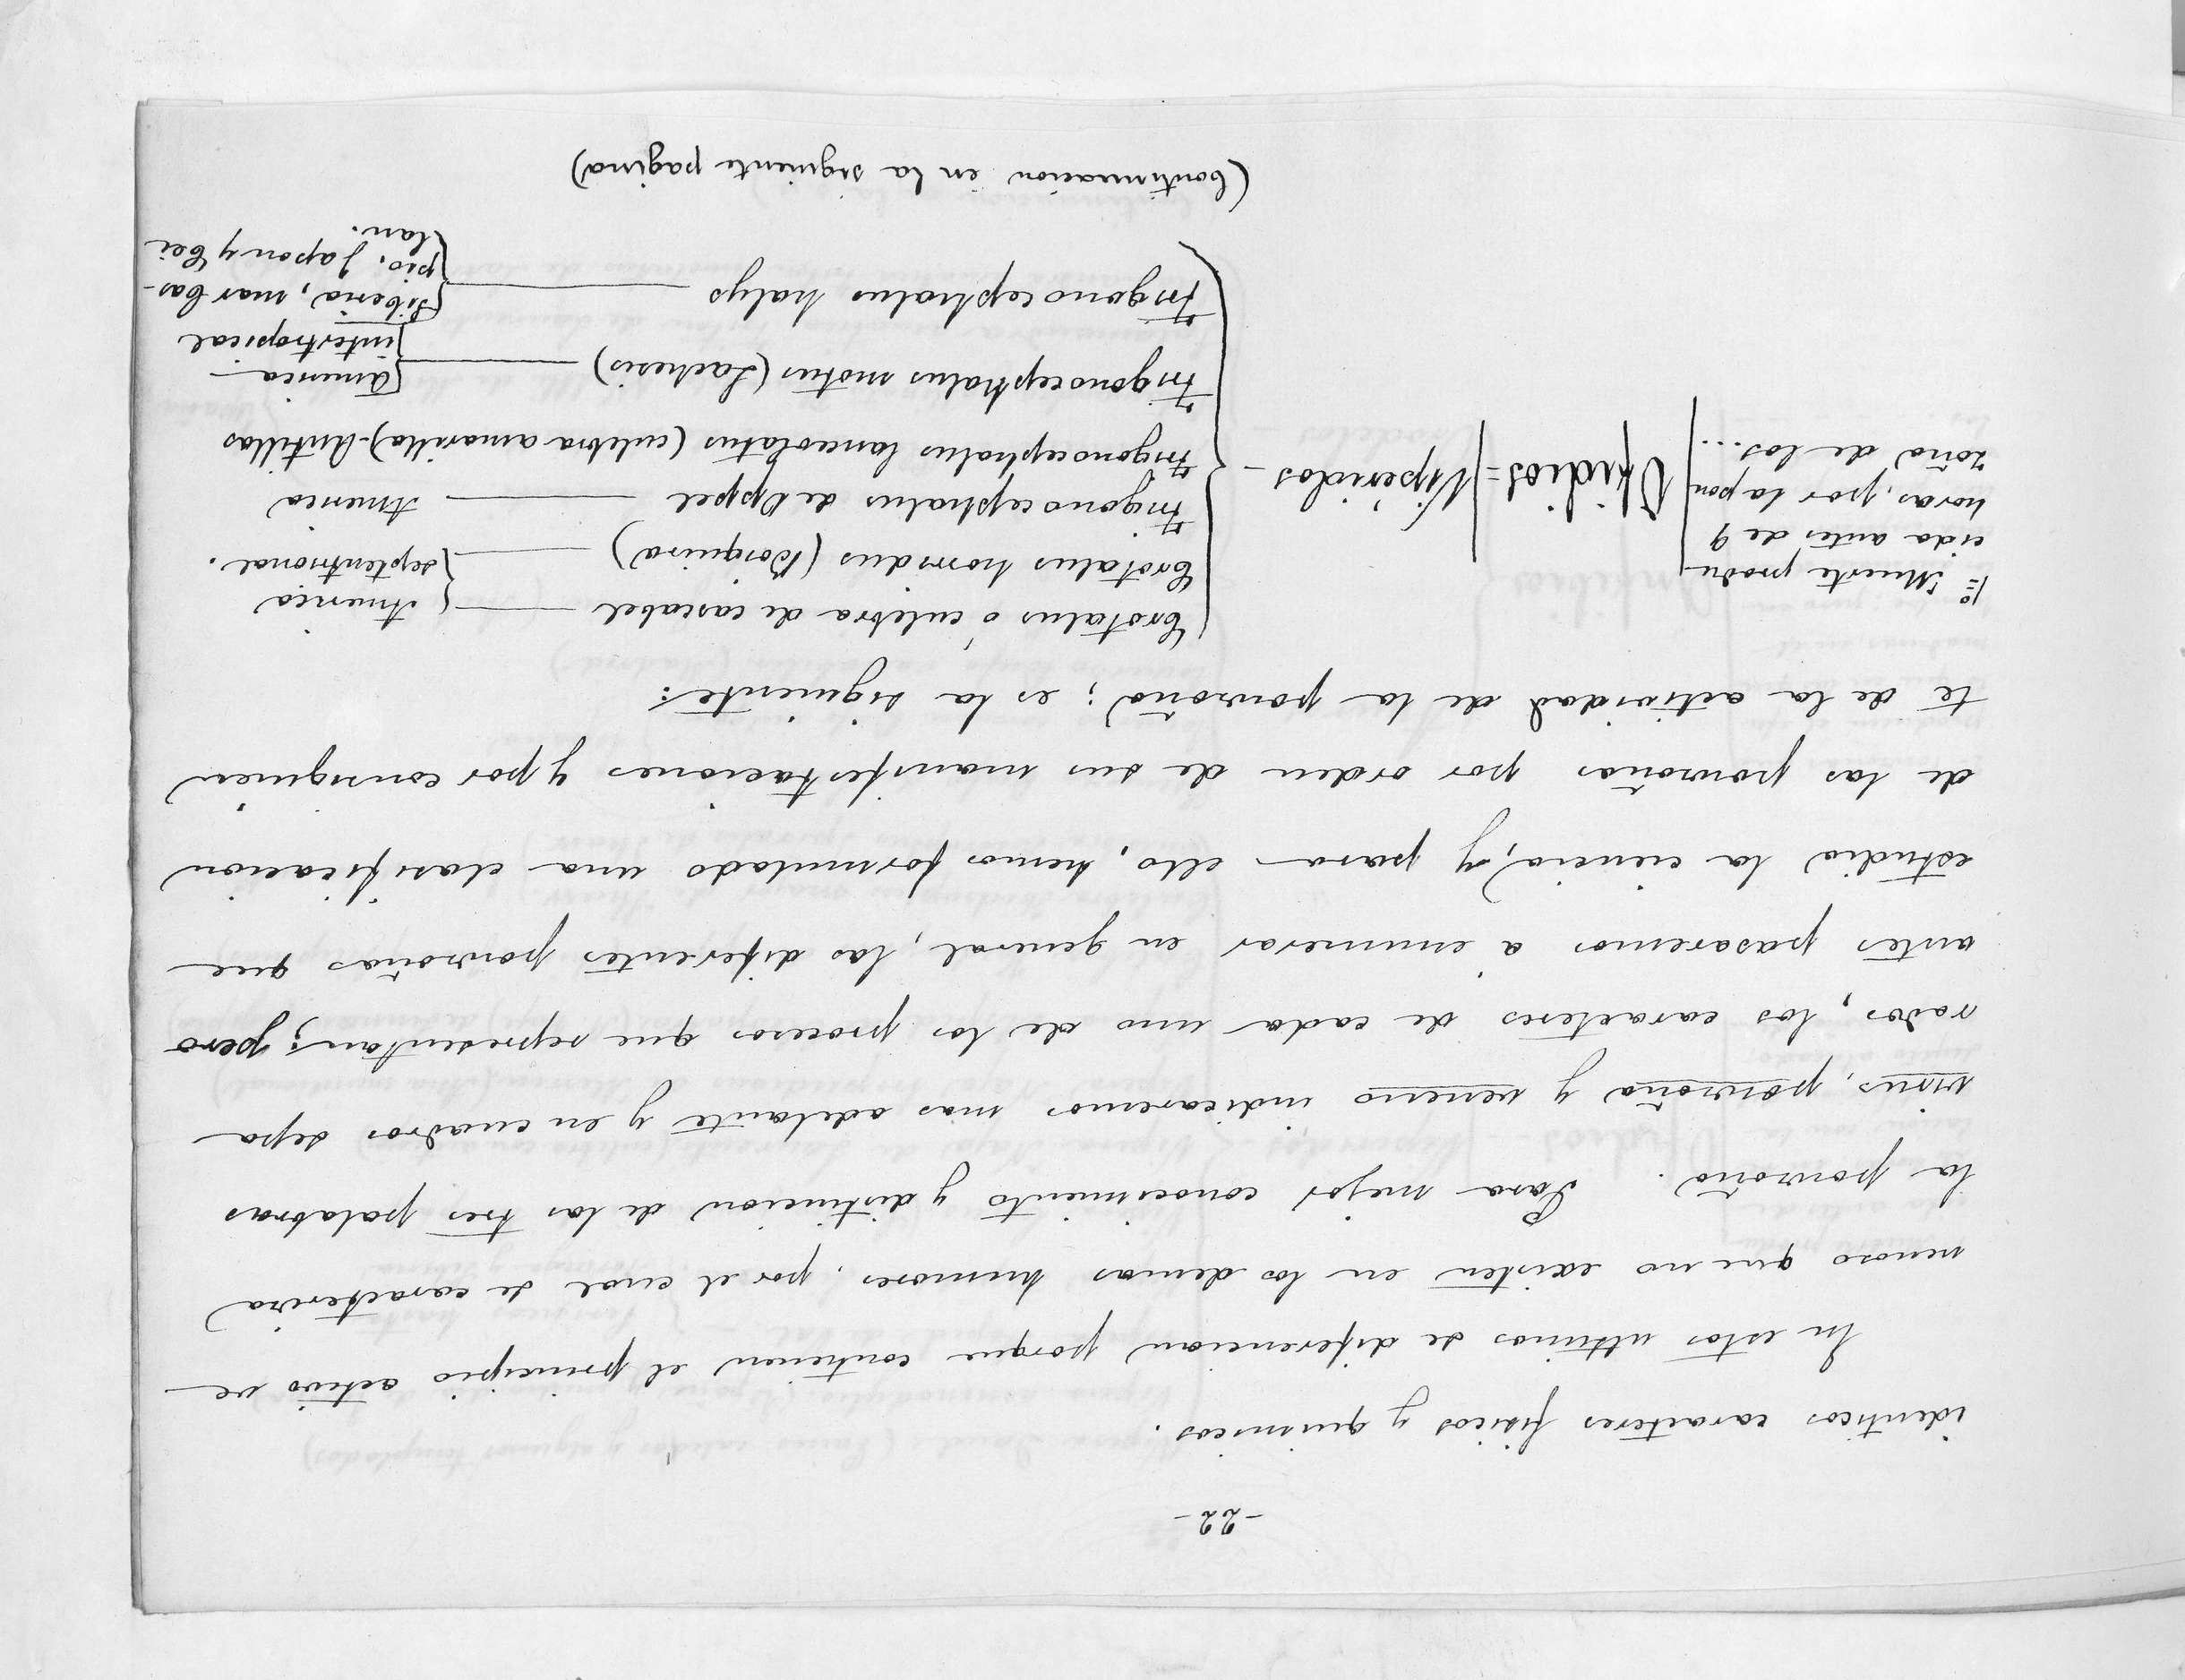 -22-
identicos caracteres fisicos y quimicos.
En estos ultimos se diferencian porque contienen el principio activo ve
nenoso que no existen en los demas humores, por el cual se caracteriza
la ponzoña. Para mejor conocimiento y distincion de las tres palabras
virus, ponzoña y veneno indicaremos mas adelante y en cuadros sepa
rados, los caracteres de cada uno de los procesos que representan; pero
antes pasaremos á enumerar en general, las diferentes ponzoñas que
estudia la ciencia, y para ello, hemos formulado una clasificacion
de las ponzoñas por orden de sus manifestaciones y por consiguien
te de la actividad de la ponzoña; es la siguiente:
1º Muerte produ
cida antes de 9
horas, por la pon
zoña de los...
Ofidios = Viperidos -
Crotalus ó culebra de cascabel
Crotalus horridus (Boiquira)
America
septentrional.
Trigonocephalus de Oppel America
Trigonocephalus lanceolatus (culebra amarilla) - Antillas
Trigonocephalus motus (Lachesis)
America
intertropical
Trigonocephalus halys
Siberia, mar Cas-
pio, Japon y Cei
lan.
(Continuacion en la siguiente pagina)